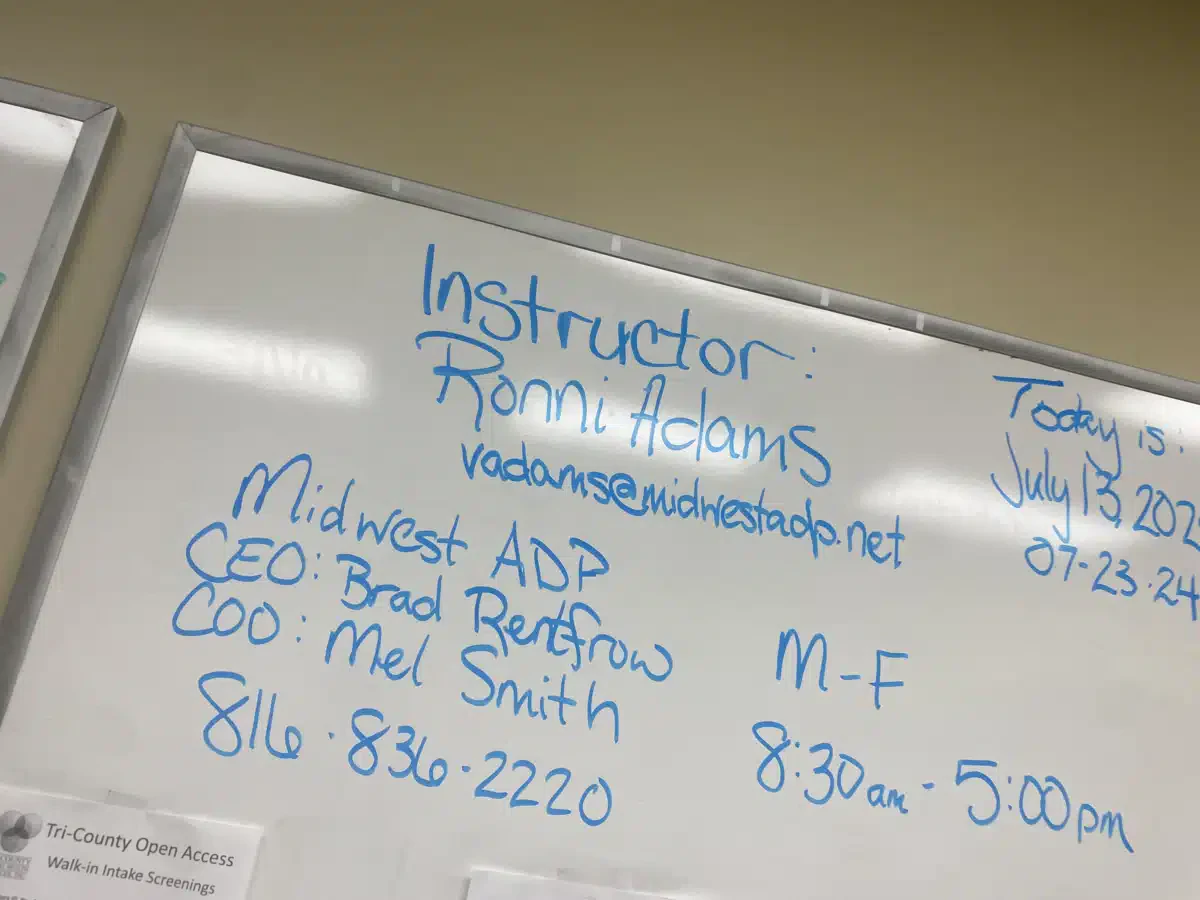 Instructor:
Ronni Adams
vadams@midwestadp.net
Midwest ADP
CEO: Brad Rentfrow
COO: Mel Smith
816.836.2220
Today is:
July 13, 202
07-23.24
M-F
8:30am - 5:00pm
Tri-County Open Access
Walk-in Intake Screenings